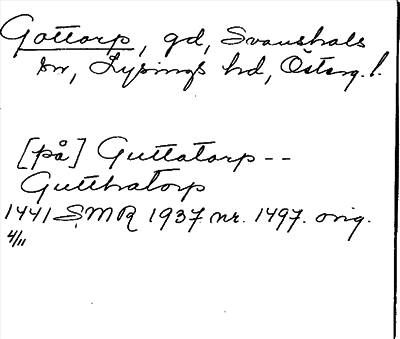 Gottorp, gd, Svanshals
sn, Lysings hd, Österg. l.
[på] Guttatorp --
Gutthratorp
1441 SMR 1937 nr. 1497. orig.
4/11